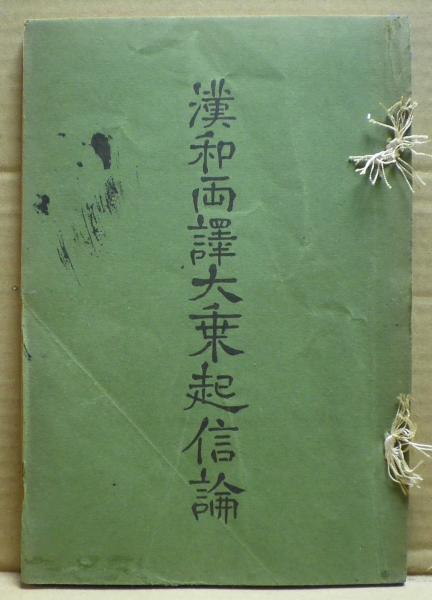 漢和両譯大乗起信論